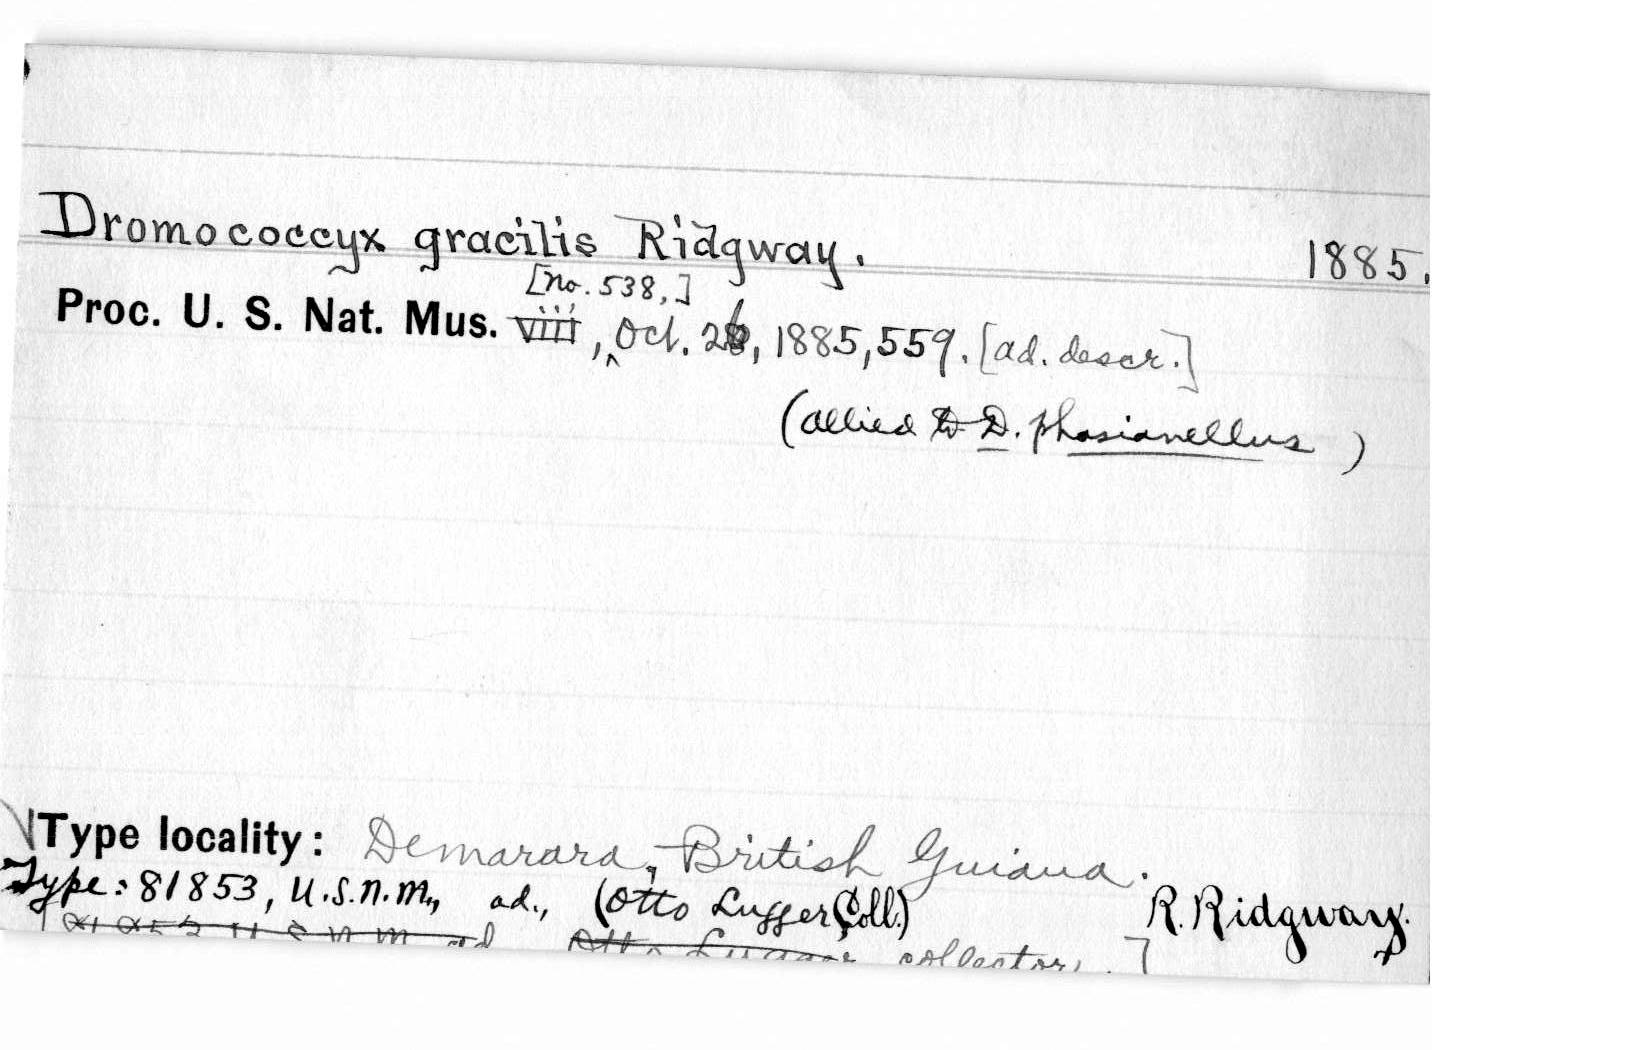 Dromococcyx gracilis Ridgway. 1885.
[no. 538,]
Proc. U. S. Nat. Mus. viii, Oct. 2, 1885, 559. [ad. descr.]
(allied to D. phasianellus )
Type locality: Demarara, British Guiana.
Type: 81853, U.S.N.M., ad., (Otto Lugger Coll.) R. Ridgway.
81853 U S N M ad Otto Lugger collector, . ]